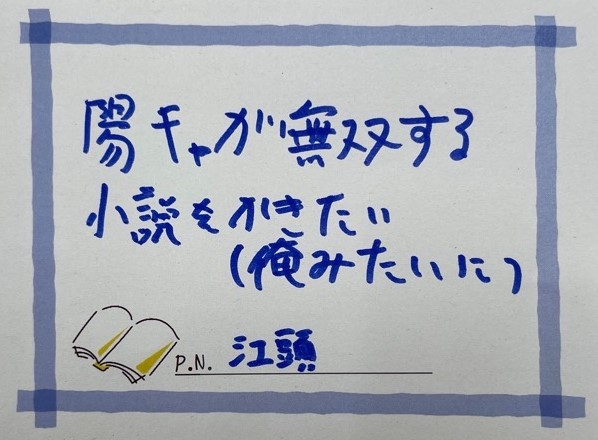 陽キャが無双する
小説をかきたい
(俺みたいに)
P.N. 江頭